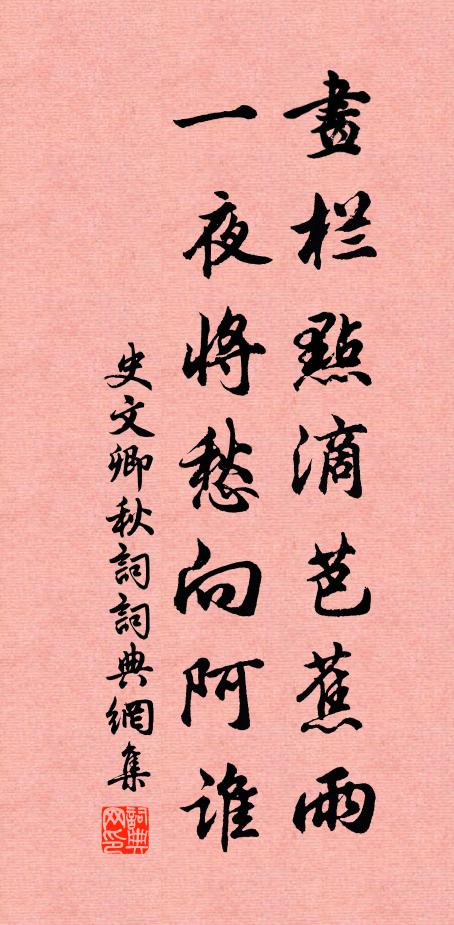 畫栏點滴芭蕉雨
一夜将愁向阿誰
史文卿秋詞詞典網集
詞典网印